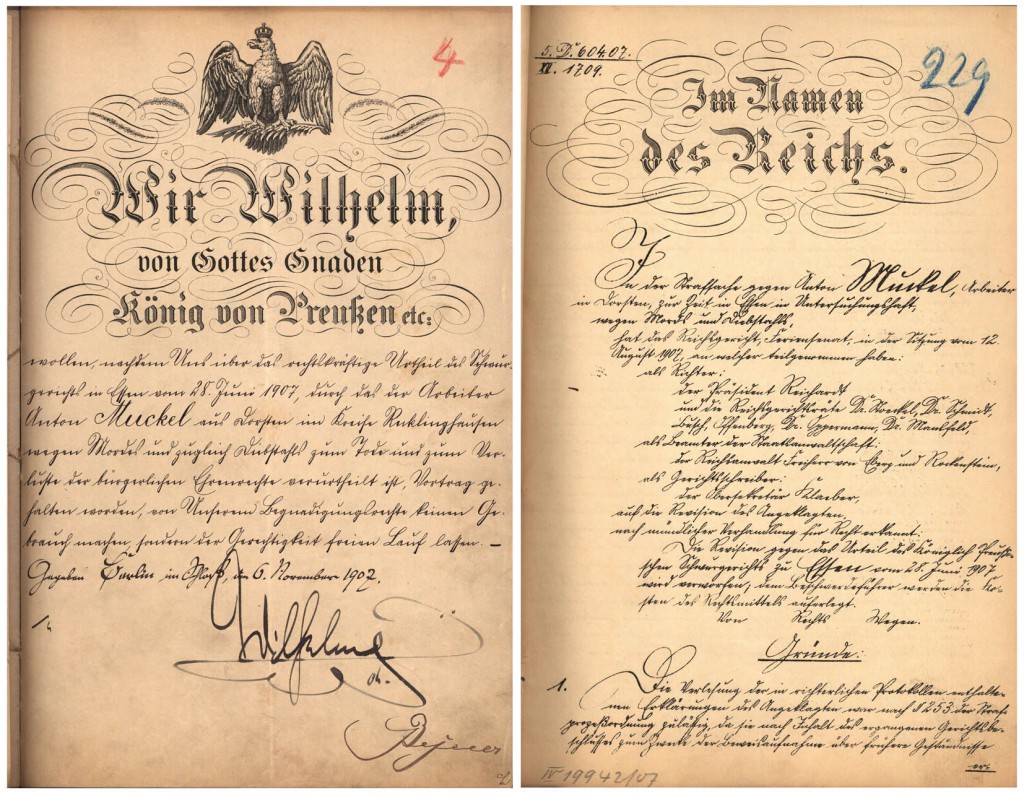 4
Wir Wilhelm,
von Gottes Gnaden
König von Preußen etc:
wollen, nachdem Uns über das rechtskräftige Urtheil des Schwur-
gerichts in Essen vom 28. Juni 1907, durch das der Arbeiter
Anton Muckel aus Dorsten im Kreise Recklinghausen
wegen Mordes und zugleich Diebstahls zum Tode und zum Ver-
luste der bürgerlichen Ehrenrechte verurtheilt ist, Vortrag ge-
halten worden, von Unserem Begnadigungsrechte keinen Ge-
brauch machen, sondern der Gerechtigkeit freien Lauf lassen. —
Gegeben Berlin im Schloß, den 6. November 1907.
Wilhelm
5. D. 604.07.
XII. 1709.
229
Im Namen
des Reichs.
In der Strafsache gegen Anton Muckel, Arbeiter
in Dorsten, zur Zeit in Essen in Untersuchungshaft,
wegen Mords und Diebstahls,
hat das Reichsgericht, Feriensenat, in der Sitzung vom 12.
August 1907, an welcher teilgenommen haben:
als Richter:
der Präsident Reichardt
und die Reichsgerichtsräte Dr. Stoeckel, Dr. Schmidt,
Büsch, Dr. Oppermann, Dr. Maulfeld,
als Beamter der Staatsanwaltschaft:
der Reichsanwalt Freiherr von Eberz und Rockenstein,
als Gerichtsschreiber:
der Obersekretär Klaeber,
auf die Revision des Angeklagten,
nach mündlicher Verhandlung für Recht erkannt:
Die Revision gegen das Urteil des Königlich Preußi-
schen Schwurgerichts zu Essen vom 28. Juni 1907
wird verworfen; dem Beschwerdeführer werden die Ko-
sten des Rechtsmittels auferlegt.
Von Rechts Wegen.
Gründe:
1. Die Verlesung der in richterlichen Protokollen enthalte-
nen Erklärungen des Angeklagten war nach § 253 der Straf-
prozeßordnung zulässig, da sie nach Inhalt des ergangenen Gerichtsbe-
schlusses zum Zwecke der Beweisaufnahme über frühere Geständnisse
IV 19942/07